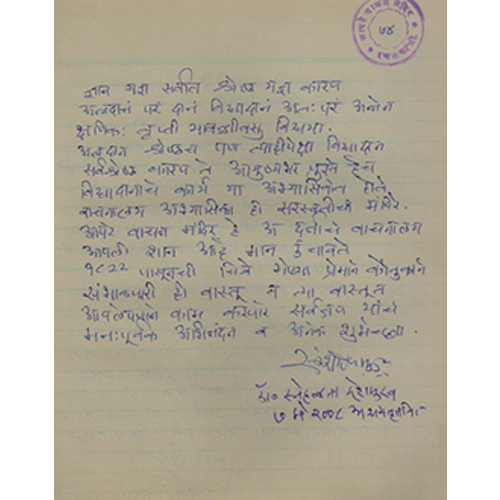 ७४
ज्ञान यज्ञ सर्वात श्रेष्ठ यज्ञ कारण
अन्नदानं परं दानं विद्यादानं अतः परं अन्नेन
क्षणिकः तृप्ती यावज्जीवतु विद्यया.
अन्नदान श्रेष्ठच पण त्याहीपेक्षा विद्यादान
सर्वश्रेष्ठ कारण ते आयुष्यभर पुरते हेच
विद्यादानाचे कार्य या अभ्यासिकेत होते
वाचनालय अभ्यासिका ही सरस्वतीची मंदिरे.
आपटे वाचन मंदिर हे अ दर्जाचे वाचनालय
आपली शान आहे मान उंचावते
१८२२ पासूनची चित्रे गोष्टी प्रेमाने कौतुकाने
सांभाळणारी ही वास्तू व त्या वास्तूत
आपलेपणाने काम करणारे सर्वजण यांचे
मनःपूर्वक अभिनंदन व अनेक शुभेच्छा.
डॉ॰ स्नेहलता देशमुख
७ मे २००८